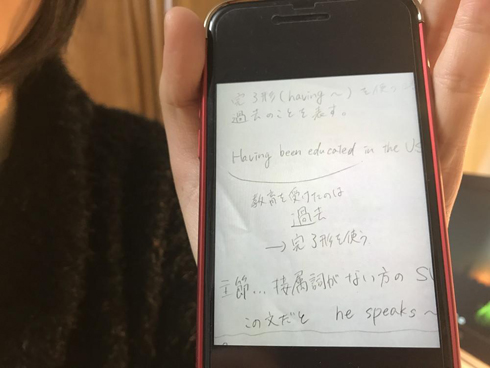 完了形(having ~)を使う
過去のことを表す。
Having been educated in the US
教育を受けたのは
過去
→完了形を使う
節…接属詞がない方の SV
この文だと he speaks ~